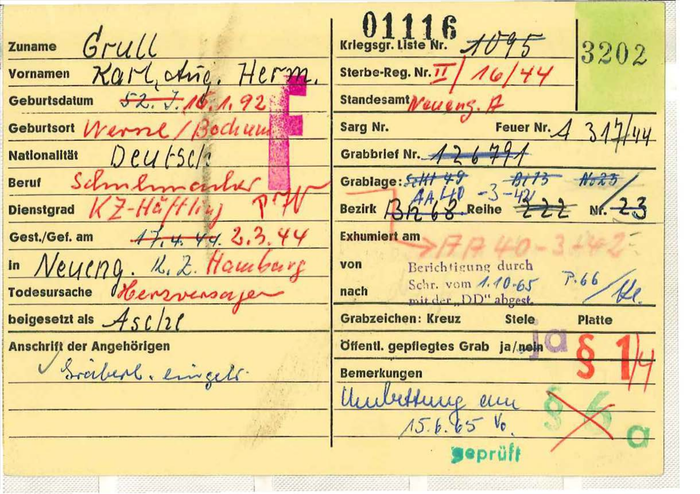 01116
Zuname Grull
Vornamen Karl, Aug. Herm.
Geburtsdatum 52. J. 10.1.92
Geburtsort Werne/Bochum
Nationalität Deutsch
Beruf Schuhmacher
Dienstgrad KZ-Häftling
Gest./Gef. am 17.4.44 2.3.44
in Neueng. K.Z. Hamburg
Todesursache Herzversagen
beigesetzt als Asche
Anschrift der Angehörigen
Gräberl. eingetr.
F
Kriegsgr. Liste Nr. 1095
3202
Sterbe-Reg. Nr. II/16/44
Standesamt Neueng. A
Sarg Nr. Feuer Nr. A 317/44
Grabbrief Nr. 126791
Grablage: Scht 49 Br 73 No 23
AA 40 -3-42
Bezirk Bn 68. Reihe 222 Nr. 23
Exhumiert am
AA 40-3-42
von Berichtigung durch
Schr. vom 1.10.65 P.66
nach mit der „DD" abgest.
Grabzeichen: Kreuz Stele Platte
Öffentl. gepflegtes Grab ja/nein ja § 1/4
Bemerkungen
Umbettung am § 6 a
15.6.65
geprüft